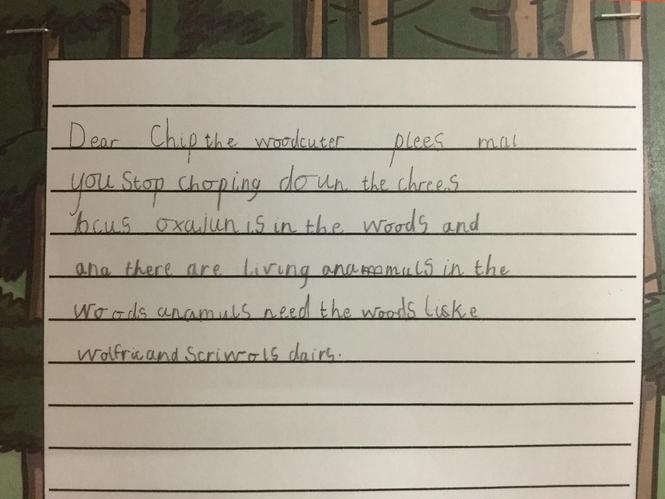 Dear Chip the woodcuter plees mai
you stop choping doun the chrees
bcus oxajun is in the woods and
ana there are living anamuls in the
woods anamuls need the woods liske
and scriwols dairs.